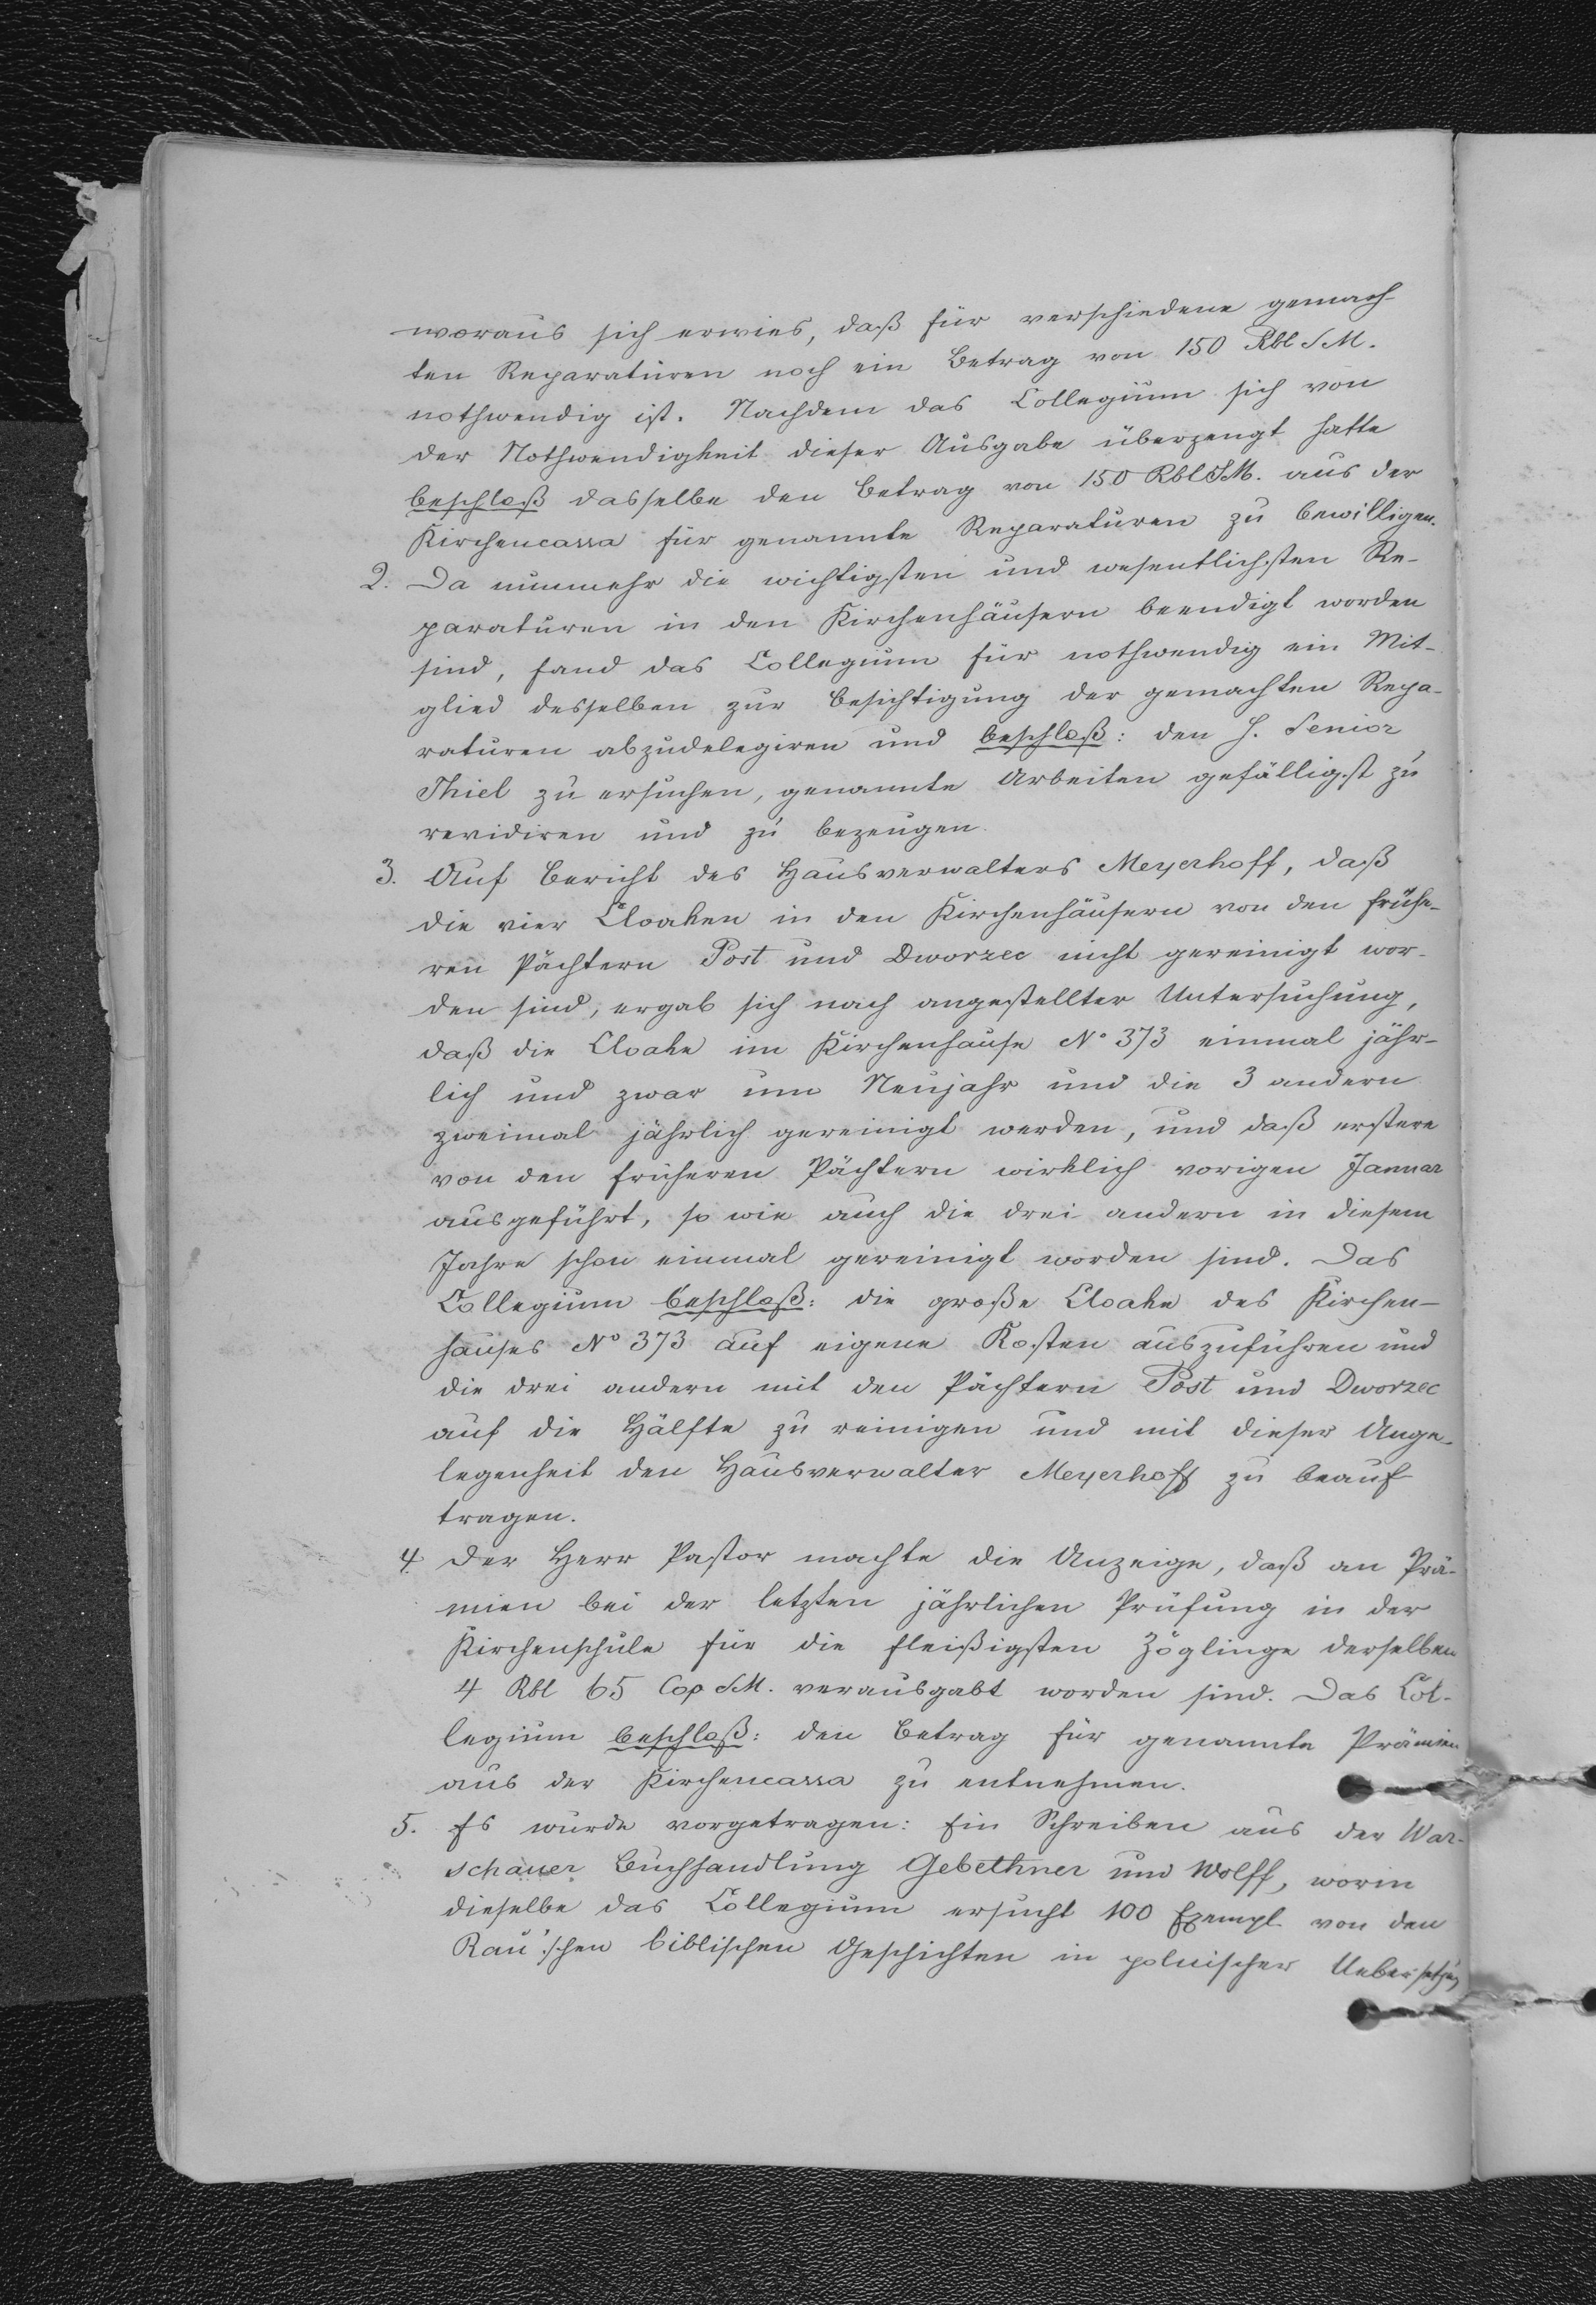 woraus sich erwies, daß für verschiedene gemach-
ten Reparaturen noch ein Betrag von 150 Rbl SM.
nothwendig ist. Nachdem das Collegium sich von
der Nothwendigkeit dieser Ausgabe überzeugt hatte
beschloß dasselbe den Betrag von 150 Rbl SM. aus der
Kirchencassa für genannte Reparaturen zu bewilligen.
2. Da nunmehr die wichtigsten und wesentlichsten Re-
paraturen in den Kirchenhäusern beendigt worden
sind, fand das Collegium für nothwendig ein Mit-
glied desselben zur Besichtigung der gemachten Repa-
raturen abzudelegiren und beschloß: den H. Senior
Thiel zu ersuchen, genannte Arbeiten gefälligst zu
revidiren und zu bezeugen.
3. Auf Bericht des Hausverwalters Meyerhoff, daß
die vier Cloaken in den Kirchenhäusern von den frühe-
ren Pächtern Post und Dworzec nicht gereinigt wor-
den sind, ergab sich nach angestellter Untersuchung,
daß die Cloake im Kirchenhause No 373 einmal jähr-
lich und zwar um Neujahr und die 3 andern
zweimal jährlich gereinigt werden, und daß erstere
von den früheren Pächtern wirklich vorigen Januar
ausgeführt, so wie auch die drei andern in diesem
Jahre schon einmal gereinigt worden sind. Das
Collegium beschloß: die große Cloake des Kirchen-
hauses No 373 auf eigene Kosten auszuführen und
die drei andern mit den Pächtern Post und Dworzec
auf die Hälfte zu reinigen und mit dieser Ange-
legenheit den Hausverwalter Meyerhoff zu beauf-
tragen.
4. Der Herr Pastor machte die Anzeige, daß an Prä-
mien bei der letzten jährlichen Prüfung in der
Kirchenschule für die fleißigsten Zöglinge derselben
4 Rbl 65 Cop SM. verausgabt worden sind. Das Col-
legium beschloß: den Betrag für genannte Prämien
aus der Kirchencassa zu entnehmen.
5. Es wurde vorgetragen: Ein Schreiben aus der War-
schauer Buchhandlung Gebethner und Wolff, worin
dieselbe das Collegium ersucht 100 Exempl. von den
Rau'schen biblischen Geschichten in polnischer Uebersetzung